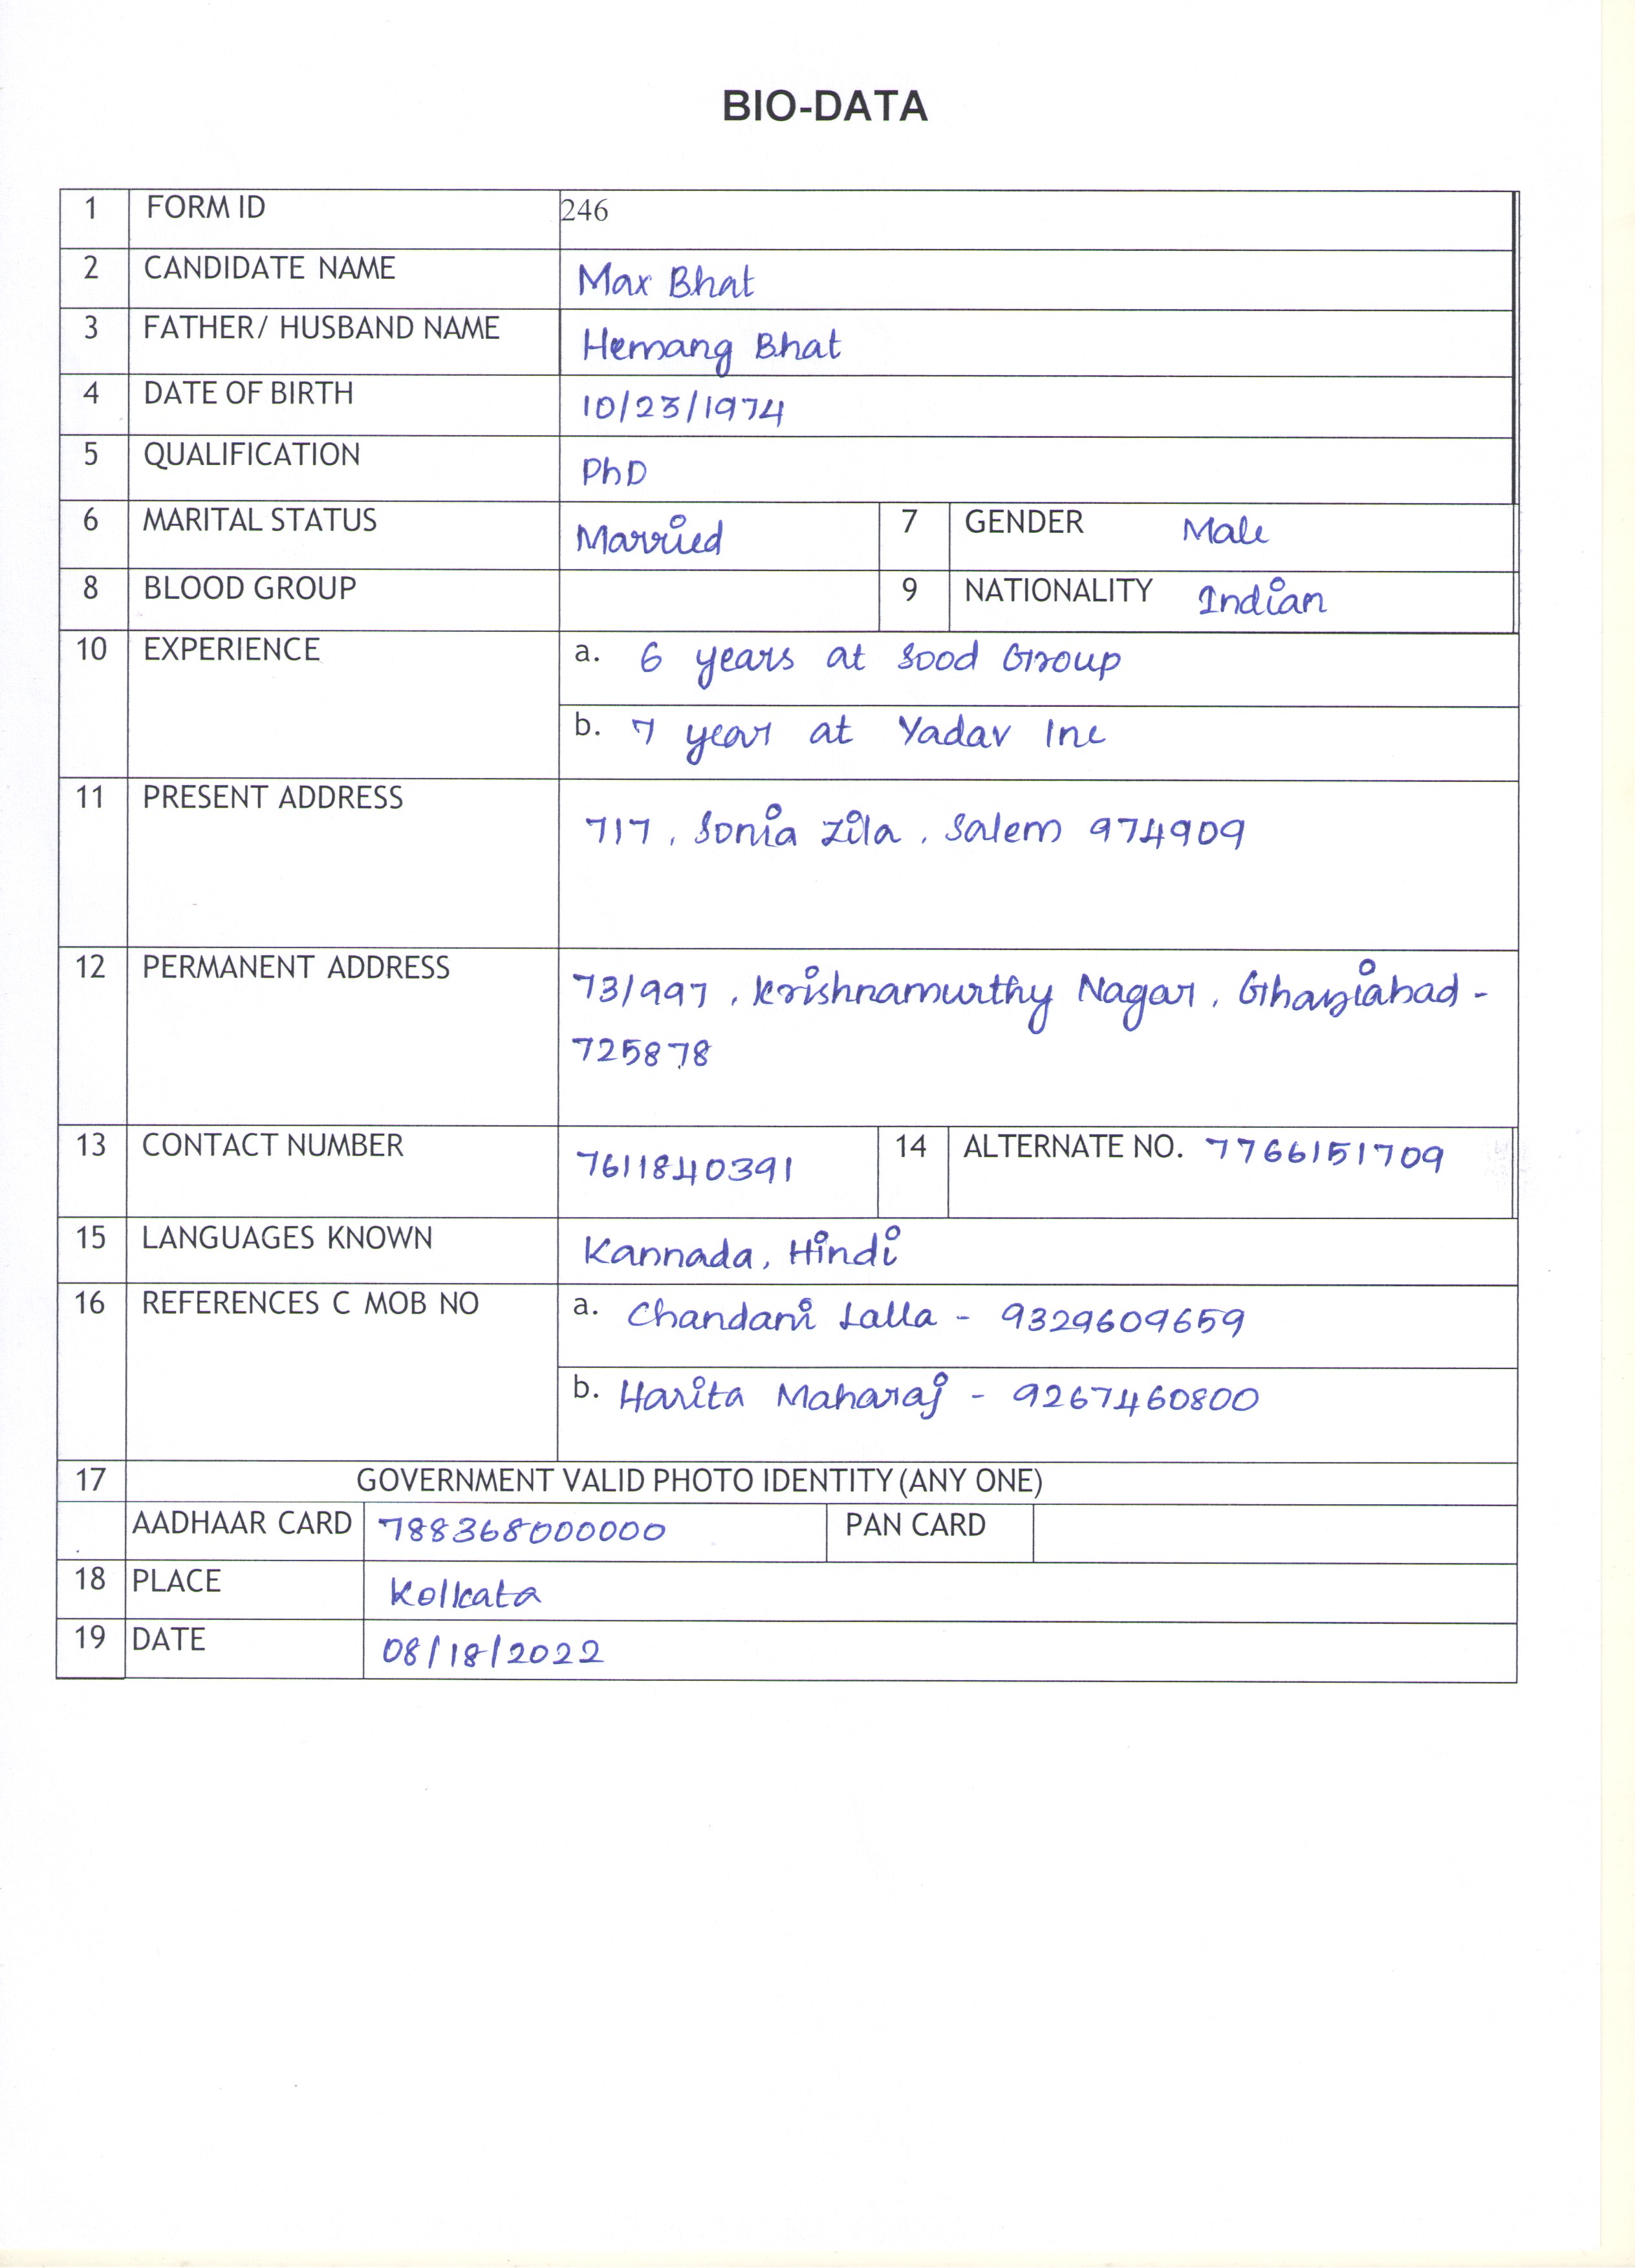 BIO-DATA
1 FORM ID 246
2 CANDIDATE NAME Max Bhat
3 FATHER/ HUSBAND NAME Hemang Bhat
4 DATE OF BIRTH 10/23/1974
5 QUALIFICATION PhD
6 MARITAL STATUS Married 7 GENDER Male
8 BLOOD GROUP 9 NATIONALITY Indian
10 EXPERIENCE a. 6 years at Sood Group
b. 7 year at Yadav Inc
11 PRESENT ADDRESS
717, Sonia Zila, Salem 974909
12 PERMANENT ADDRESS 73/997, Krishnamurthy Nagar, Ghaziabad -
725878
13 CONTACT NUMBER 7611840391 14 ALTERNATE NO. 7766151709
15 LANGUAGES KNOWN Kannada, Hindi
16 REFERENCES C MOB NO a. Chandani Lalla - 9329609659
b. Harita Maharaj - 9267460800
17 GOVERNMENT VALID PHOTO IDENTITY (ANY ONE)
AADHAAR CARD 788368000000 PAN CARD
18 PLACE Kolkata
19 DATE 08/18/2022